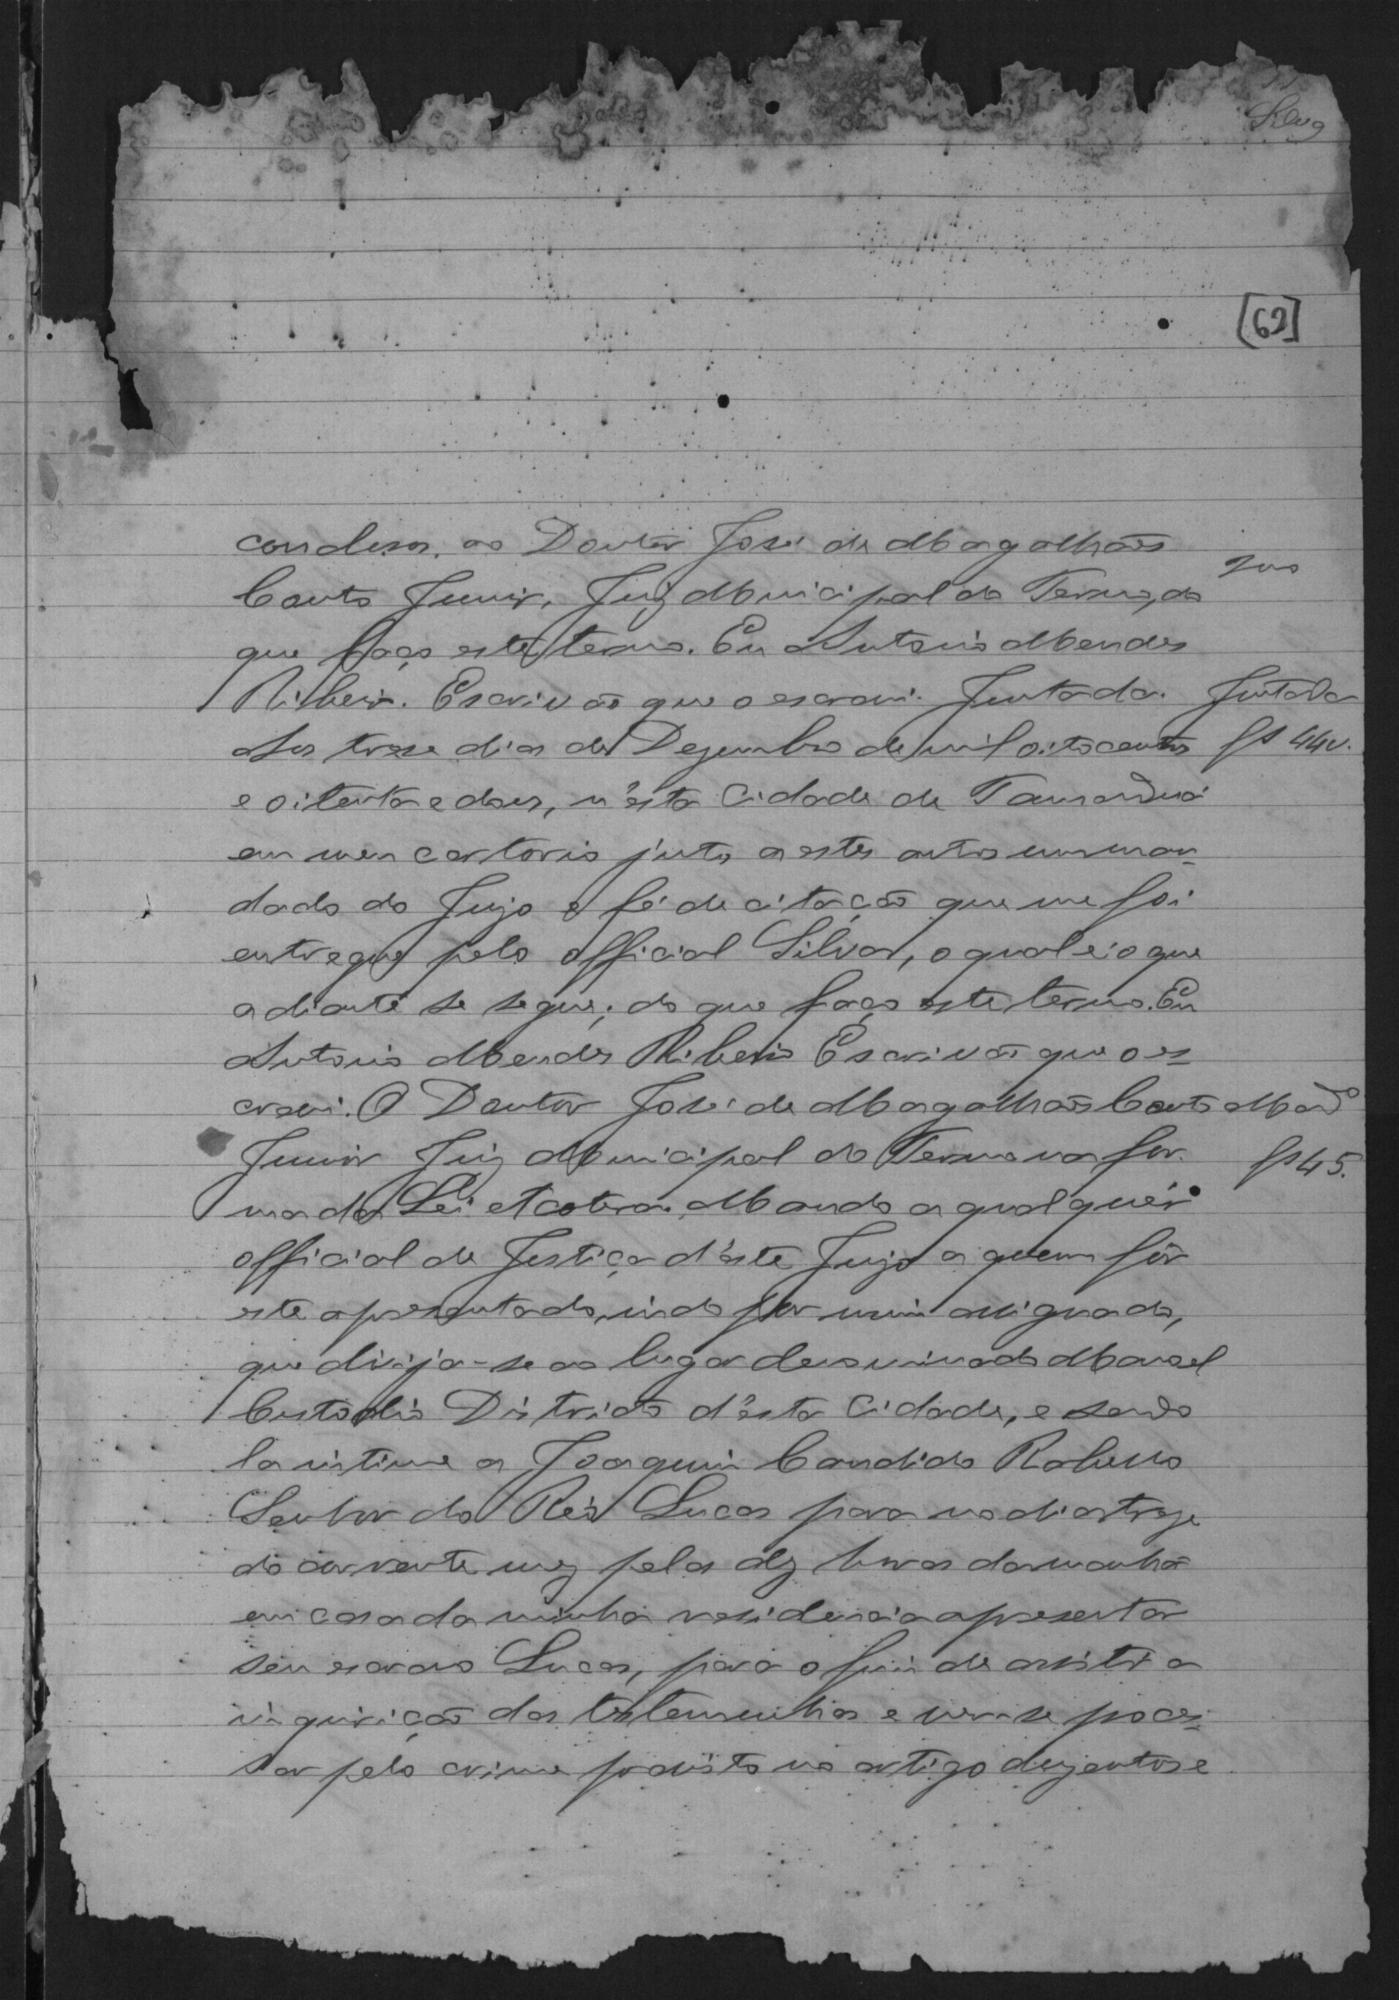 Silva
[62]
conclusos. ao Doutor José de Magalhães
Couto Junior, Juiz Municipal do Termo, do
que faço este termo. Eu Antonio Mendes
Ribeiro. Escrivão que o escrevi. Juntada. Juntada
Aos trese dias de Dezembro de mil oitocentos fs 44v.
e oitenta e dous, n'esta Cidade de Tamanduá
em meu cartorio junto a estes autos um man-
dado do Juizo e fé de citação que me foi
entregue pelo official Silva, o qual é o que
adiante se segue; do que faço este termo. Eu
Antonio Mendes Ribeiro Escrivão que o es-
crevi. O Doutor José de Magalhães Couto Mando
Junior Juiz Municipal do Termo na for- fs 45.
ma da Lei etcetera. Mando a qualquér
official de Justiça d'éste Juizo a quem fôr
este apresentado, indo por mim assignado,
que dirija-se ao lugar denominado Manoel
Custodio Districto d'ésta Cidade, e sendo
la intime a Joaquim Candido Rabello
Senhor do Réo Lucas para no dia treze
do corrente mez pelas dez horas da manhã
em casa da minha residencia apresentar
seu escravo Lucas, para o fim de assistir a
inquirição das testemunhas e ver-se proces-
sar pelo crime previsto no artigo duzentos e